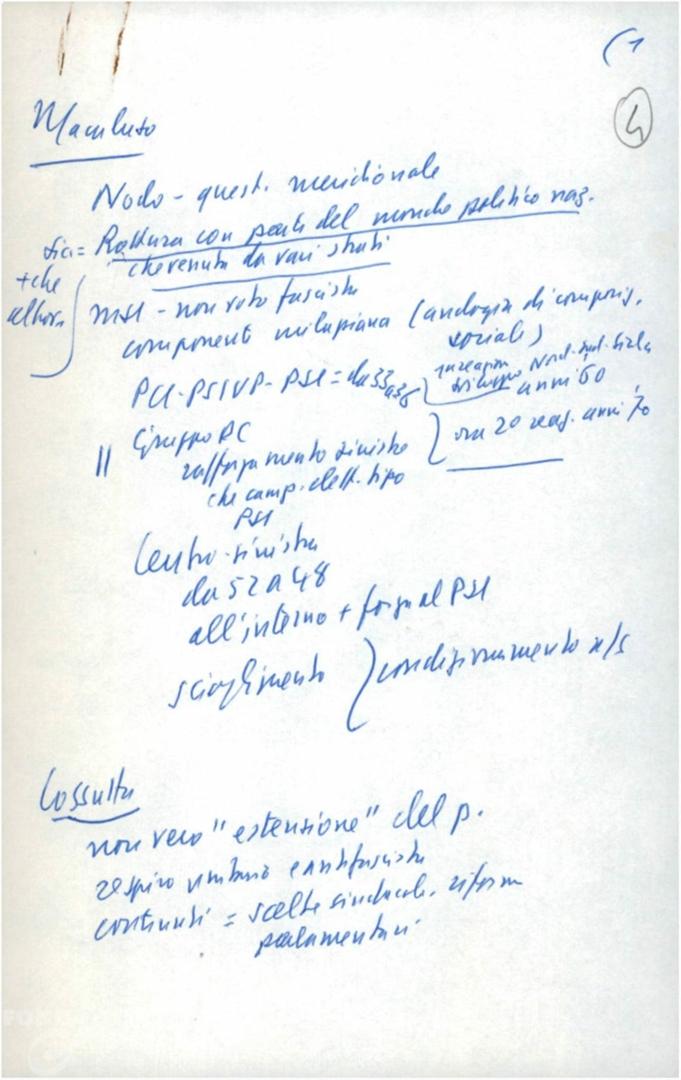 (1
4
Macaluso
Nodo - quest. meridionale
Sic = Rottura con parti del mondo politico naz.
che venuta da vari strati
+ che
allora
MSI - non voto fascista
componenti milazziana (analogia di compos.
sociale)
PCI-PSIUP-PSI = da 33 a 36
sviluppo Nord-Sud-Sicilia
anni 60
Gruppo PC
rafforzamento sinistre
che camp. elett. tipo
PSI
ora 20 reg. anni 70
Centro-sinistra
da 52 a 48
all'interno + forza al PSI
scioglimento
condizionamento a/s
Cossutta
non vero "estensione" del p.
respiro unitario e antifascista
contenuti = scelte sindacali, riforme
parlamentari